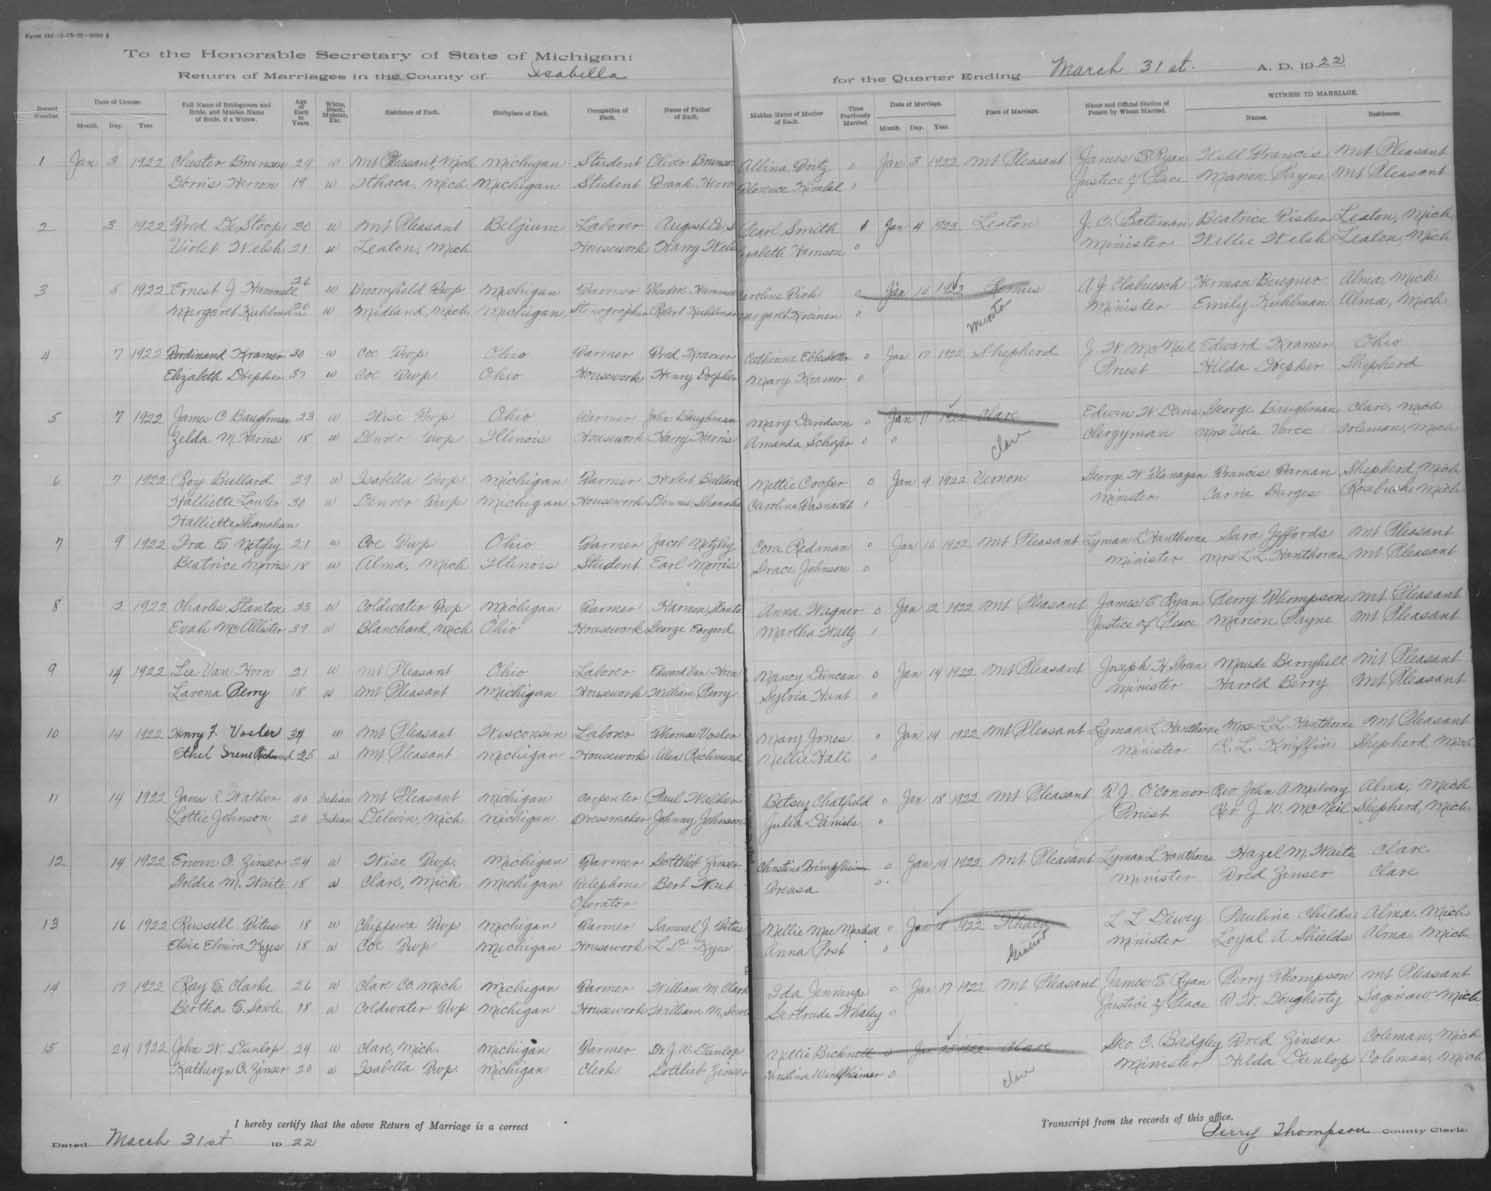 To the Honorable Secretary of State of Michigan:
Return of Marriages in the County of Isabella for the Quarter Ending March 31st. A. D. 1922
Record Number. Date of License. Month. Day. Year. Full Name of Bridegroom and Bride, and Maiden Name of Bride, if a Widow. Age of Each in Years White, Black, Mulatto, Etc. Residence of Each. Birthplace of Each. Occupation of Each. Name of Father of Each. Maiden Name of Mother of Each. Times Previously Married. Date of Marriage. Month. Day. Year. Place of Marriage. Name and Official Station of Person by Whom Married. WITNESS TO MARRIAGE. Names. Residences.
1 Jan 3 1922 Chester 29 w Mt Pleasant, Mich Michigan Student Oliver Albina 0 Jan 3 1922 Mt Pleasant James E Ryan Nell Francis Mt Pleasant
Dorris Herron 19 w Ithaca, Mich Michigan Student Frank Florence Kimbel 1 Justice of Peace Marion Payne Mt Pleasant
2 3 1922 Fred De Stoop 30 w Mt Pleasant Belgium Laborer August Pearl Smith 0 Jan 4 1922 Leaton J. C. Bateman Beatrice Fisher Leaton, Mich
Violet Welsh 21 w Leaton, Mich Housework Harry Welsh Harrison 0 Minister Willie Welsh Leaton, Mich
3 5 1922 Ernest J 26 w Broomfield Twp Michigan Farmer Caroline 0 Jan 10 1922 Minister Herman Alma, Mich
Margaret Kuhlman 20 w Midland, Mich Michigan Stenographer Robert Kuhlman Margareth 0 Emily Kuhlman Alma, Mich
4 7 1922 Ferdinand Kramer 30 w Coe Twp Ohio Farmer Fred Kramer Catherine 0 Jan 17 1922 Shepherd J. W McNeil Edward Kramer Ohio
Elizabeth Doepker 37 w Coe Twp Ohio Housework Henry Doepker Mary Kramer 0 Priest Hilda Doepker Shepherd
5 7 1922 James C Baughman 23 w Wise Twp Ohio Farmer John Baughman Mary Davidson 0 Jan 11 1922 Clare Edwin W Davis George Baughman Clare, Mich
Zelda M. Harris 18 w Denver Twp Illinois Housework Harry Harris Amanda 0 Clare Clergyman Mrs Viola Coleman, Mich
6 7 1922 Roy Bullard 29 w Isabella Twp Michigan Farmer Bullard Nettie Cooper 0 Jan 9 1922 Vernon George W Flanagan Francis Shepherd, Mich
Halliette 30 w Denver Twp Michigan Housework Dennis Shanahan Caroline 1 Minister Carrie Rosebush, Mich
Halliette Shanahan
7 9 1922 Ira E Netzley 21 w Coe Twp Ohio Farmer Jacob Netzley Cora Redman 0 Jan 16 1922 Mt Pleasant Lyman L Hawthorne Sara Jeffords Mt Pleasant
Beatrice Morris 18 w Alma, Mich Illinois Student Earl Morris Grace Johnson 0 Minister Mrs L L Hawthorne Mt Pleasant
8 2 1922 Charles Stanton 33 w Coldwater Twp Michigan Farmer Harmon Anna Wagner 0 Jan 12 1922 Mt Pleasant James E Ryan Perry Thompson Mt Pleasant
Evah McAllister 39 w Blanchard, Mich Ohio Housework George Martha Waltz 1 Justice of Peace Marion Payne Mt Pleasant
9 14 1922 Lee Van Horn 21 w Mt Pleasant Ohio Laborer Edward Van Horn Nancy Duncan 0 Jan 14 1922 Mt Pleasant Joseph H Maude Berryhill Mt Pleasant
Lavona Perry 18 w Mt Pleasant Michigan Housework William Perry Sylvia Hunt 0 Minister Harold Berry Mt Pleasant
10 14 1922 Henry F. Vosler 34 w Mt Pleasant Wisconsin Laborer Thomas Vosler Mary Jones 0 Jan 14 1922 Mt Pleasant Lyman L Hawthorne Mrs L L Hawthorne Mt Pleasant
Ethel Irene Richmond 25 w Mt Pleasant Michigan Housework Richmond Nellie Hall 0 Minister R. L. Kniffin Shepherd Mich
11 14 1922 James Walker 40 Indian Mt Pleasant Michigan Carpenter Paul Walker Betsey Chatfield 0 Jan 18 1922 Mt Pleasant R J O'Connor Rev. John A Mulvey Alma, Mich
Lottie Johnson 20 Indian Delwin, Mich Michigan Dressmaker Johnny Johnson Julia Daniels 0 Priest Rev. J. W. McNeil Shepherd, Mich
12 14 1922 Erwin C. Zinser 24 w Wise Twp Michigan Farmer Gottlieb Zinser Christina 0 Jan 14 1922 Mt Pleasant Lyman L Hawthorne Hazel M. Waite Clare
Goldie M. Waite 18 w Clare, Mich Michigan Telephone Bert Waite 0 Minister Fred Zinser Clare
Operator
13 16 1922 Russell Pitus 18 w Chippewa Twp Michigan Farmer Samuel J. Nellie Mae 0 Jan 18 1922 Ithaca L L Dewey Pauline Childs Alma, Mich
Elsie Elmira Keyes 18 w Coe Twp Michigan Housework Anna Post 0 Gratiot Minister Loyal A Shields Alma, Mich
14 17 1922 Ray E Clarke 26 w Clare Co. Mich Michigan Farmer William M. Clark Ida Jennings 0 Jan 17 1922 Mt Pleasant James E Ryan Perry Thompson Mt Pleasant
Bertha E. 18 w Coldwater Twp Michigan Housework William M. Gertrude 0 Justice of Peace R. W. Dougherty Saginaw Mich
15 24 1922 John W Dunlop 24 w Clare, Mich. Michigan Farmer Dr. J. W. Dunlop Nellie Bicknell 0 Jan 25 1922 Clare Geo C. Badgley Fred Zinser Coleman, Mich
Katheryn C. Zinser 20 w Isabella Twp Michigan Clerk Gottlieb Zinser 0 Clare Minister Hilda Dunlop Coleman, Mich
I hereby certify that the above Return of Marriage is a correct Transcript from the records of this office.
Dated March 31st 1922 Perry Thompson County Clerk.